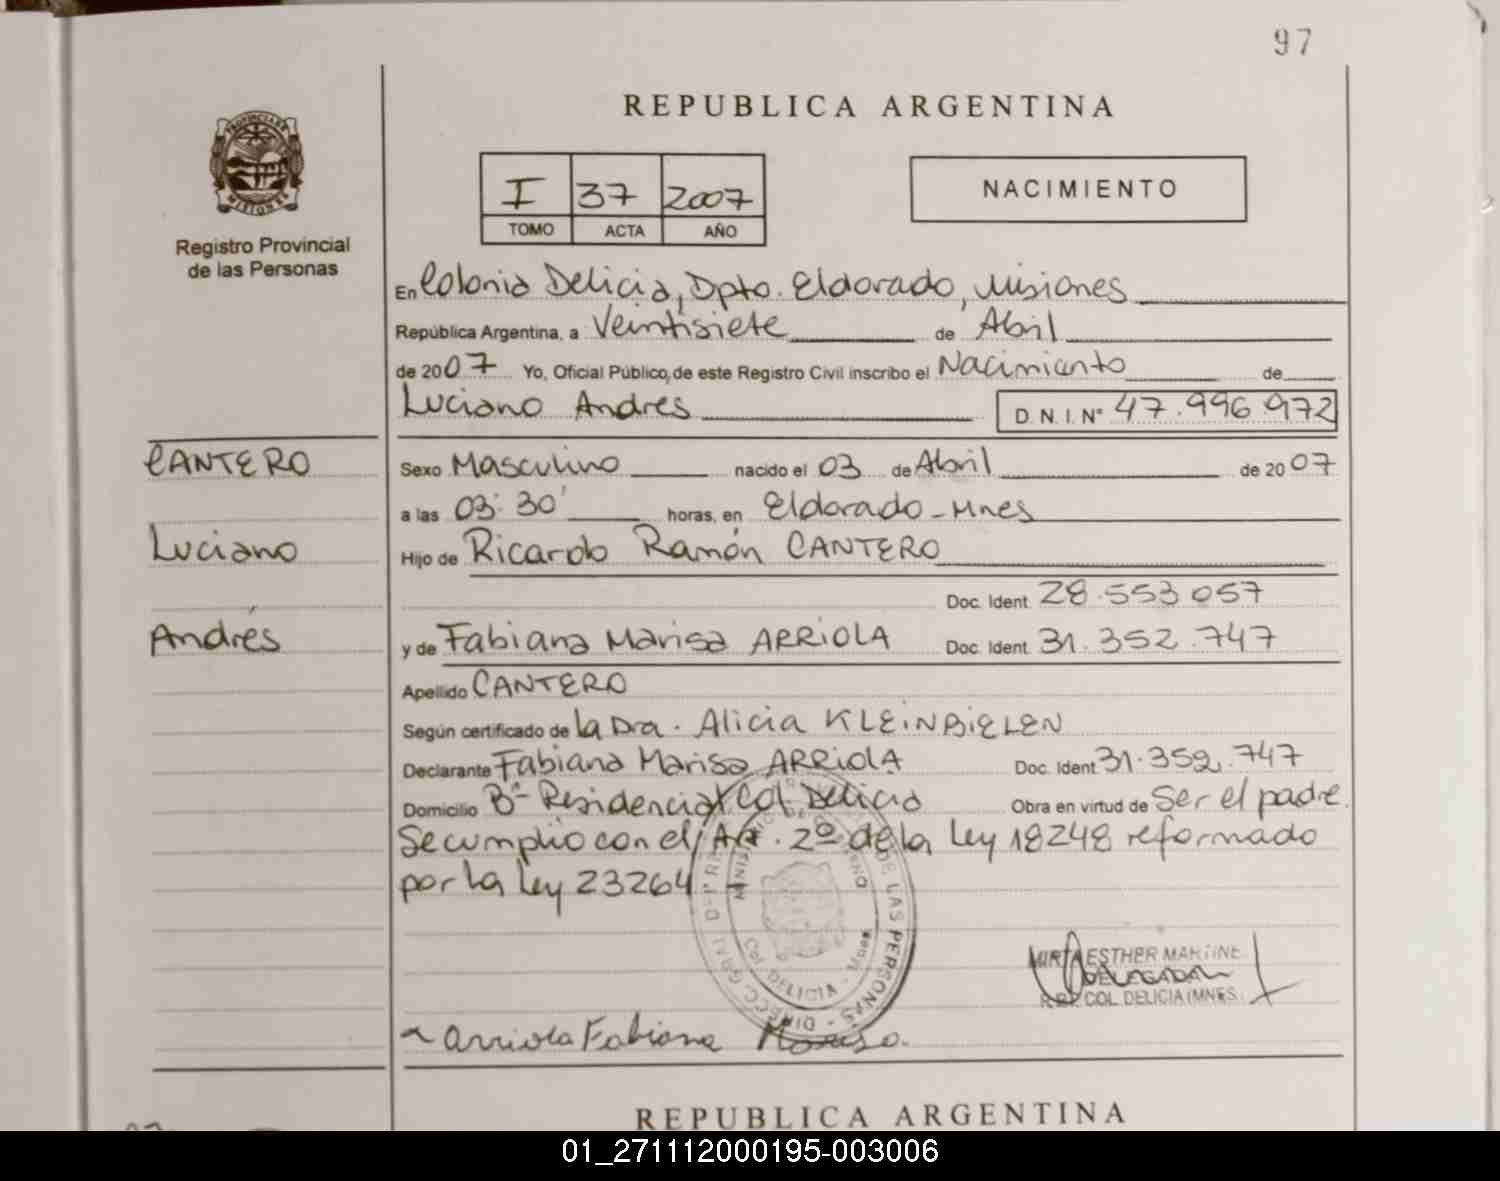 97
REPUBLICA ARGENTINA
PROVINCIA DE
MISIONES
Registro Provincial
de las Personas
I 37 2007
TOMO ACTA AÑO
NACIMIENTO
En Colonia Delicia, Dpto. Eldorado, Misiones
República Argentina, a Veintisiete de Abril
de 2007 Yo, Oficial Público, de este Registro Civil inscribo el Nacimiento de
Luciano Andres D.N.I. N° 47.996.972
CANTERO
Luciano
Andrés
Sexo Masculino nacido el 03 de Abril de 2007
a las 03:30' horas, en Eldorado - Mnes
Hijo de Ricardo Ramón CANTERO
Doc. Ident. 28.553.057
y de Fabiana Marisa ARRIOLA Doc. Ident. 31.352.747
Apellido CANTERO
Según certificado de la Dra. Alicia KLEINBIELEN
Declarante Fabiana Marisa ARRIOLA Doc. Ident. 31.352.747
Domicilio B° Residencial Col. Delicia Obra en virtud de Ser el padre.
Se cumplio con el Art. 2º de la Ley 18248 reformado
por la Ley 23264
DE LAS PERSONAS - DIRECC. GRAL. DEL
COL. DELICIA - Mnes
ESTHER MARTINE
DELEGADA
COL. DELICIA (MNES.
Arriola Fabiana Marisa.
REPUBLICA ARGENTINA
01_271112000195-003006